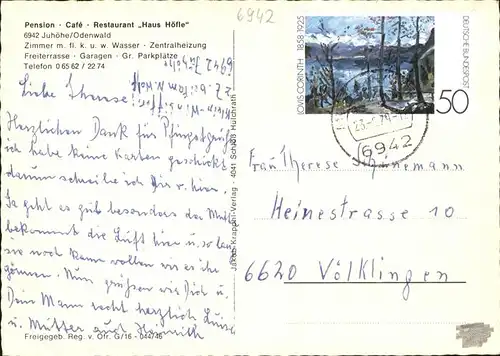 6942
Pension · Café · Restaurant „Haus Höfle“
6942 Juhöhe/Odenwald
Zimmer m. fl. k. u. w. Wasser · Zentralheizung
Freiterrasse · Garagen · Gr. Parkplätze
Telefon 0 65 62 / 22 74
6942 Juhöhe
Liebe Therese!
Herzlichen Dank für Pfingstgruß
ich habe keine Karten geschickt
darum schreibe ich Dir v. hier.
Ja geht es gut besonders das Mutti
bekommt die Luft hier u. so lan-
sie noch kann wollen wir es ihr
gönnen. Nun grüßen wir Dich u.
Dein Mann recht herzlich Luise
u. Mutter auch Heinrich
Freigegeb. Reg. v. Ofr. G/16 - 044/46
Jakob Krapohl-Verlag · 4041 Schloß Hülchrath
LOVIS CORINTH 1858·1925
DEUTSCHE BUNDESPOST
50
6942
Frau Therese
Heinestrasse 10
6620 Völklingen